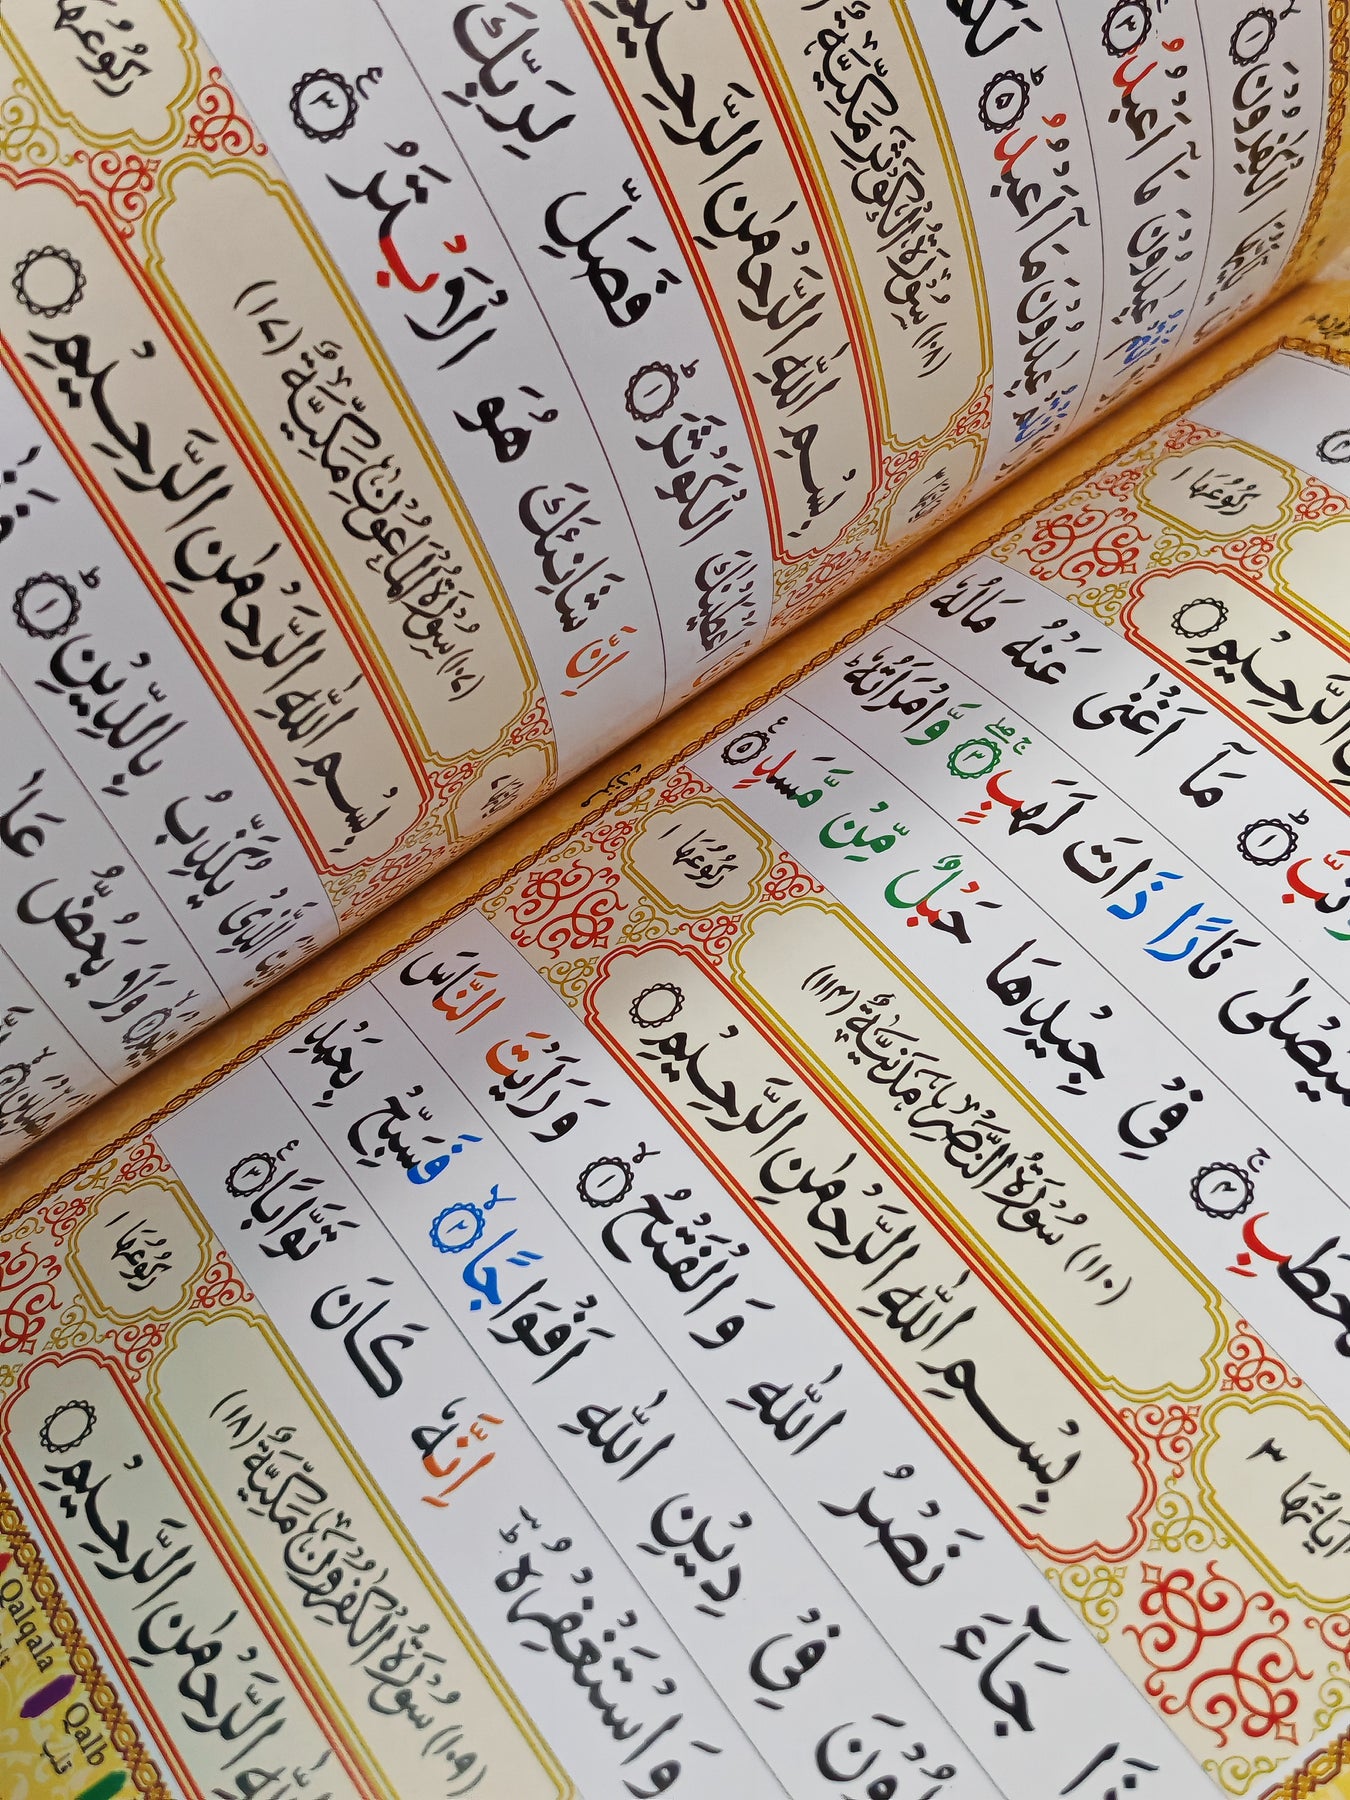 رُكُوْعُهَا ١
الرَّحِيْمِ
وَّتَبَّ ١ مَآ اَغْنٰى عَنْهُ مَالُهٗ
سَيَصْلٰى نَارًا ذَاتَ لَهَبٍ ٣ وَّامْرَاَتُهٗ
الْحَطَبِ ٤ فِيْ جِيْدِهَا حَبْلٌ مِّنْ مَّسَدٍ ٥
اٰيَاتُهَا ٣ (١١٠) سُوْرَةُ النَّصْرِ مَدَنِيَّةٌ (١١٤) رُكُوْعُهَا ١
بِسْمِ اللّٰهِ الرَّحْمٰنِ الرَّحِيْمِ
اِذَا جَآءَ نَصْرُ اللّٰهِ وَالْفَتْحُ ١ وَرَاَيْتَ النَّاسَ
فِيْ دِيْنِ اللّٰهِ اَفْوَاجًا ٢ فَسَبِّحْ بِحَمْدِ
وَاسْتَغْفِرْهُ اِنَّهٗ كَانَ تَوَّابًا ٣
(١٠٩) سُوْرَةُ الْكٰفِرُوْنَ مَكِّيَّةٌ (١٨) رُكُوْعُهَا ١
بِسْمِ اللّٰهِ الرَّحْمٰنِ الرَّحِيْمِ
Qalqala
Qalb
قلب
الْكٰفِرُوْنَ ١
عٰبِدُوْنَ مَآ اَعْبُدُ ٣
عٰبِدُوْنَ مَآ اَعْبُدُ ٥
(١٠٨) سُوْرَةُ الْكَوْثَرِ مَكِّيَّةٌ
بِسْمِ اللّٰهِ الرَّحْمٰنِ الرَّحِيْمِ
اَعْطَيْنٰكَ الْكَوْثَرَ ١ فَصَلِّ لِرَبِّكَ
اِنَّ شَانِئَكَ هُوَ الْاَبْتَرُ ٣
(١٠٧) سُوْرَةُ الْمَاعُوْنِ مَكِّيَّةٌ (١٧) رُكُوْعُهَا
بِسْمِ اللّٰهِ الرَّحْمٰنِ الرَّحِيْمِ
الَّذِيْ يُكَذِّبُ بِالدِّيْنِ ١
وَلَا يَحُضُّ